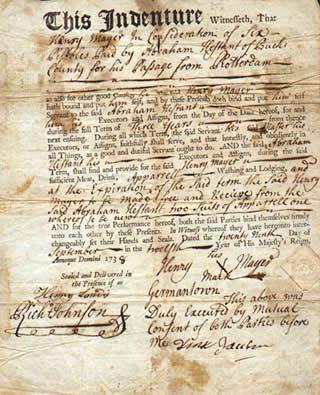 This Indenture Witnesseth, That
Henry Mayer In Consideration of Six
Pistoles Paid by Abraham Hestant of Bucks
County for his Passage from Rotterdam
as also for other good Causes he the said Henry Mayer
hath bound and put himself, and by these Presents doth bind and put himself
Servant to the said Abraham Hestant
Executors and Assigns, from the Day of the Date hereof, for and
during the full Term of Three Years
next ensuing. During all which Term, the said Servant his said Master his
Executors, or Assigns, faithfully shall serve, and that honestly, and obediently in
all Things, as a good and dutiful Servant ought to do. AND the said Abraham
Hestant his Executors and Assigns, during the said
Term, shall find and provide for the said Henry Mayer
sufficient Meat, Drink, Apparel Washing and Lodging, and
at the Expiration of the Said term the said Henry
Mayer to be made free and Receive from the
Said Abraham Hestant two Suits of Apparrell one
whereof to be new
AND for the true Performance hereof, both the said Parties bind themselves firmly
unto each other by these Presents. In Witness whereof they have interchangeably set their Hands and Seals. Dated the Day of
September in the twelfth Year of His Majesty's Reign,
Annoque Domini 1738
Sealed and Delivered in
the Presence of us
Henry his Mark Mayer
Rich Johnson
Germantown This above was
Duly Executed by Mutual
Consent of both the Parties before
me